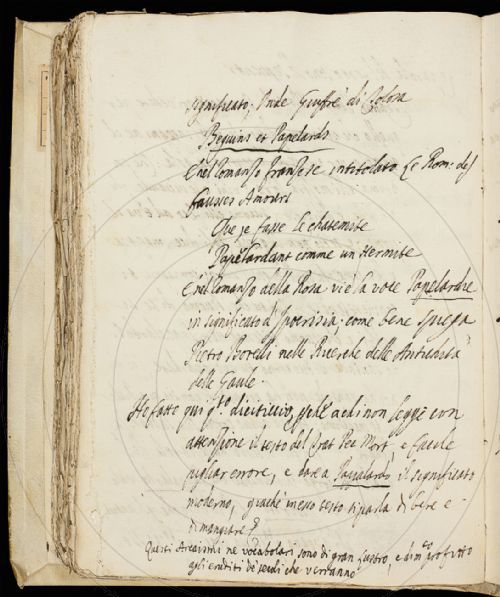 significato; Onde Giuffrè di Tolosa
Beguins et Papelards
E nel Romanzo franzese intitolato Le Rom: des
fausses Amours
Que je fasse le chatemite
Papelardant comme un Hermite
E nel Romanzo della Rosa vi è la voce Papelardie
in significato d'Ipocrisia; come bene spiega
Pietro Borelli nelle Ricerche delle Antichità
delle Gaule.
Ho fatto qui qto. diceria, perchè a chi non legge con
attenzione il testo del Mort, e facile
pigliar errore, e dare a Pappalardo il significato
moderno, perchè in esso testo si parla di bere e
di mangiare
Questi Arcaismi ne vocabolari sono di gran lustro, e di profitto
agli eruditi di secoli che verranno